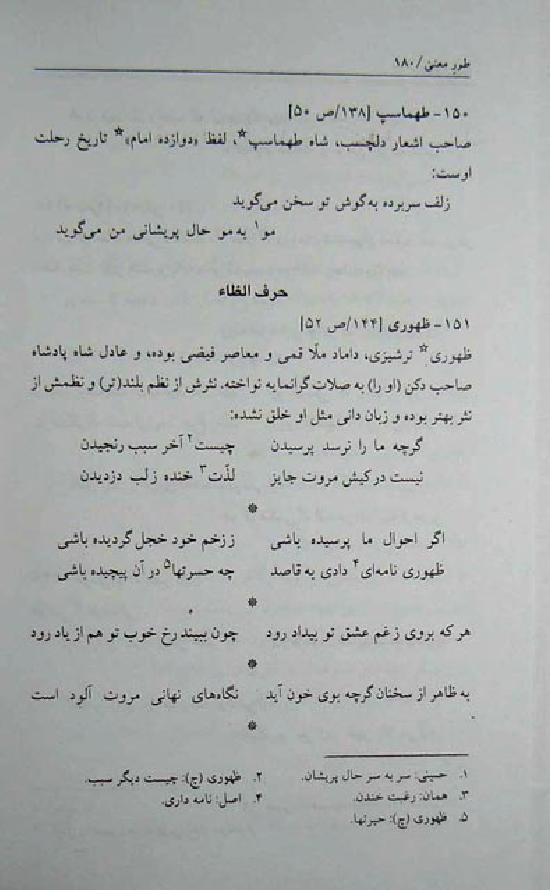 طور معنی / ۱۸۰
۱۵۰- طهماسپ [۱۳۸/ص ۵۰]
صاحب اشعار دلچسب، شاه طهماسپ*، لفظ «دوازده امام»* تاریخ رحلت
اوست:
زلف سربرده به‌گوش تو سخن می‌گوید
مو۱ به‌مو حال پریشانی من می‌گوید
حرف الظاء
۱۵۱- ظهوری [۱۴۴/ص ۵۲]
ظهوری* ترشیزی، داماد ملّا قمی و معاصر فیضی بوده، و عادل شاه پادشاه
صاحب دکن (او را) به صلات گرانمایه نواخته. نثرش از نظم بلند(تر) و نظمش از
نثر بهتر بوده و زبان دانی مثل او خلق نشده:
گرچه ما را نرسد پرسیدن چیست۲ آخر سبب رنجیدن
نیست درکیش مروت جایز لذّت۳ خنده زلب دزدیدن
*
اگر احوال ما پرسیده باشی ز زخم خود خجل گردیده باشی
ظهوری نامه‌ای۴ دادی به قاصد چه حسرتها۵ دو آن پیچیده باشی
*
هرکه بروی زغم عشق تو بیداد رود چون ببیند رخ خوب تو هم از یاد رود
*
به ظاهر از سخنان گرچه بوی خون آید نگاه‌های نهانی مروت آلود است
*
۱. حسینی: سر به سر حال پریشان. ۲. ظهوری (چ): چیست دیگر سبب.
۳. همان: رغبت خندن. ۴. اصل: نامه داری.
۵. ظهوری (چ): حیرتها.